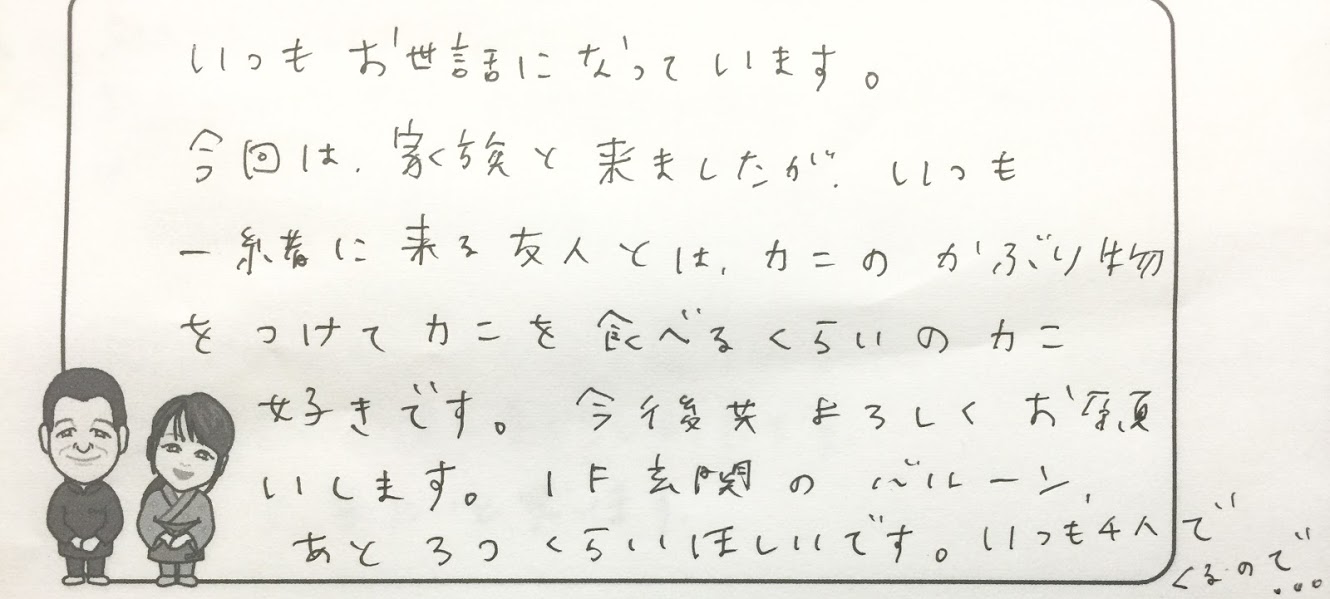 いつもお世話になっています。
今回は、家族と来ましたが、いつも
一緒に来る友人とは、カニのかぶり物
をつけてカニを食べるくらいのカニ
好きです。今後共よろしくお願
いします。1F玄関のバルーン、
あと3つくらいほしいです。いつも4人で
くるので...